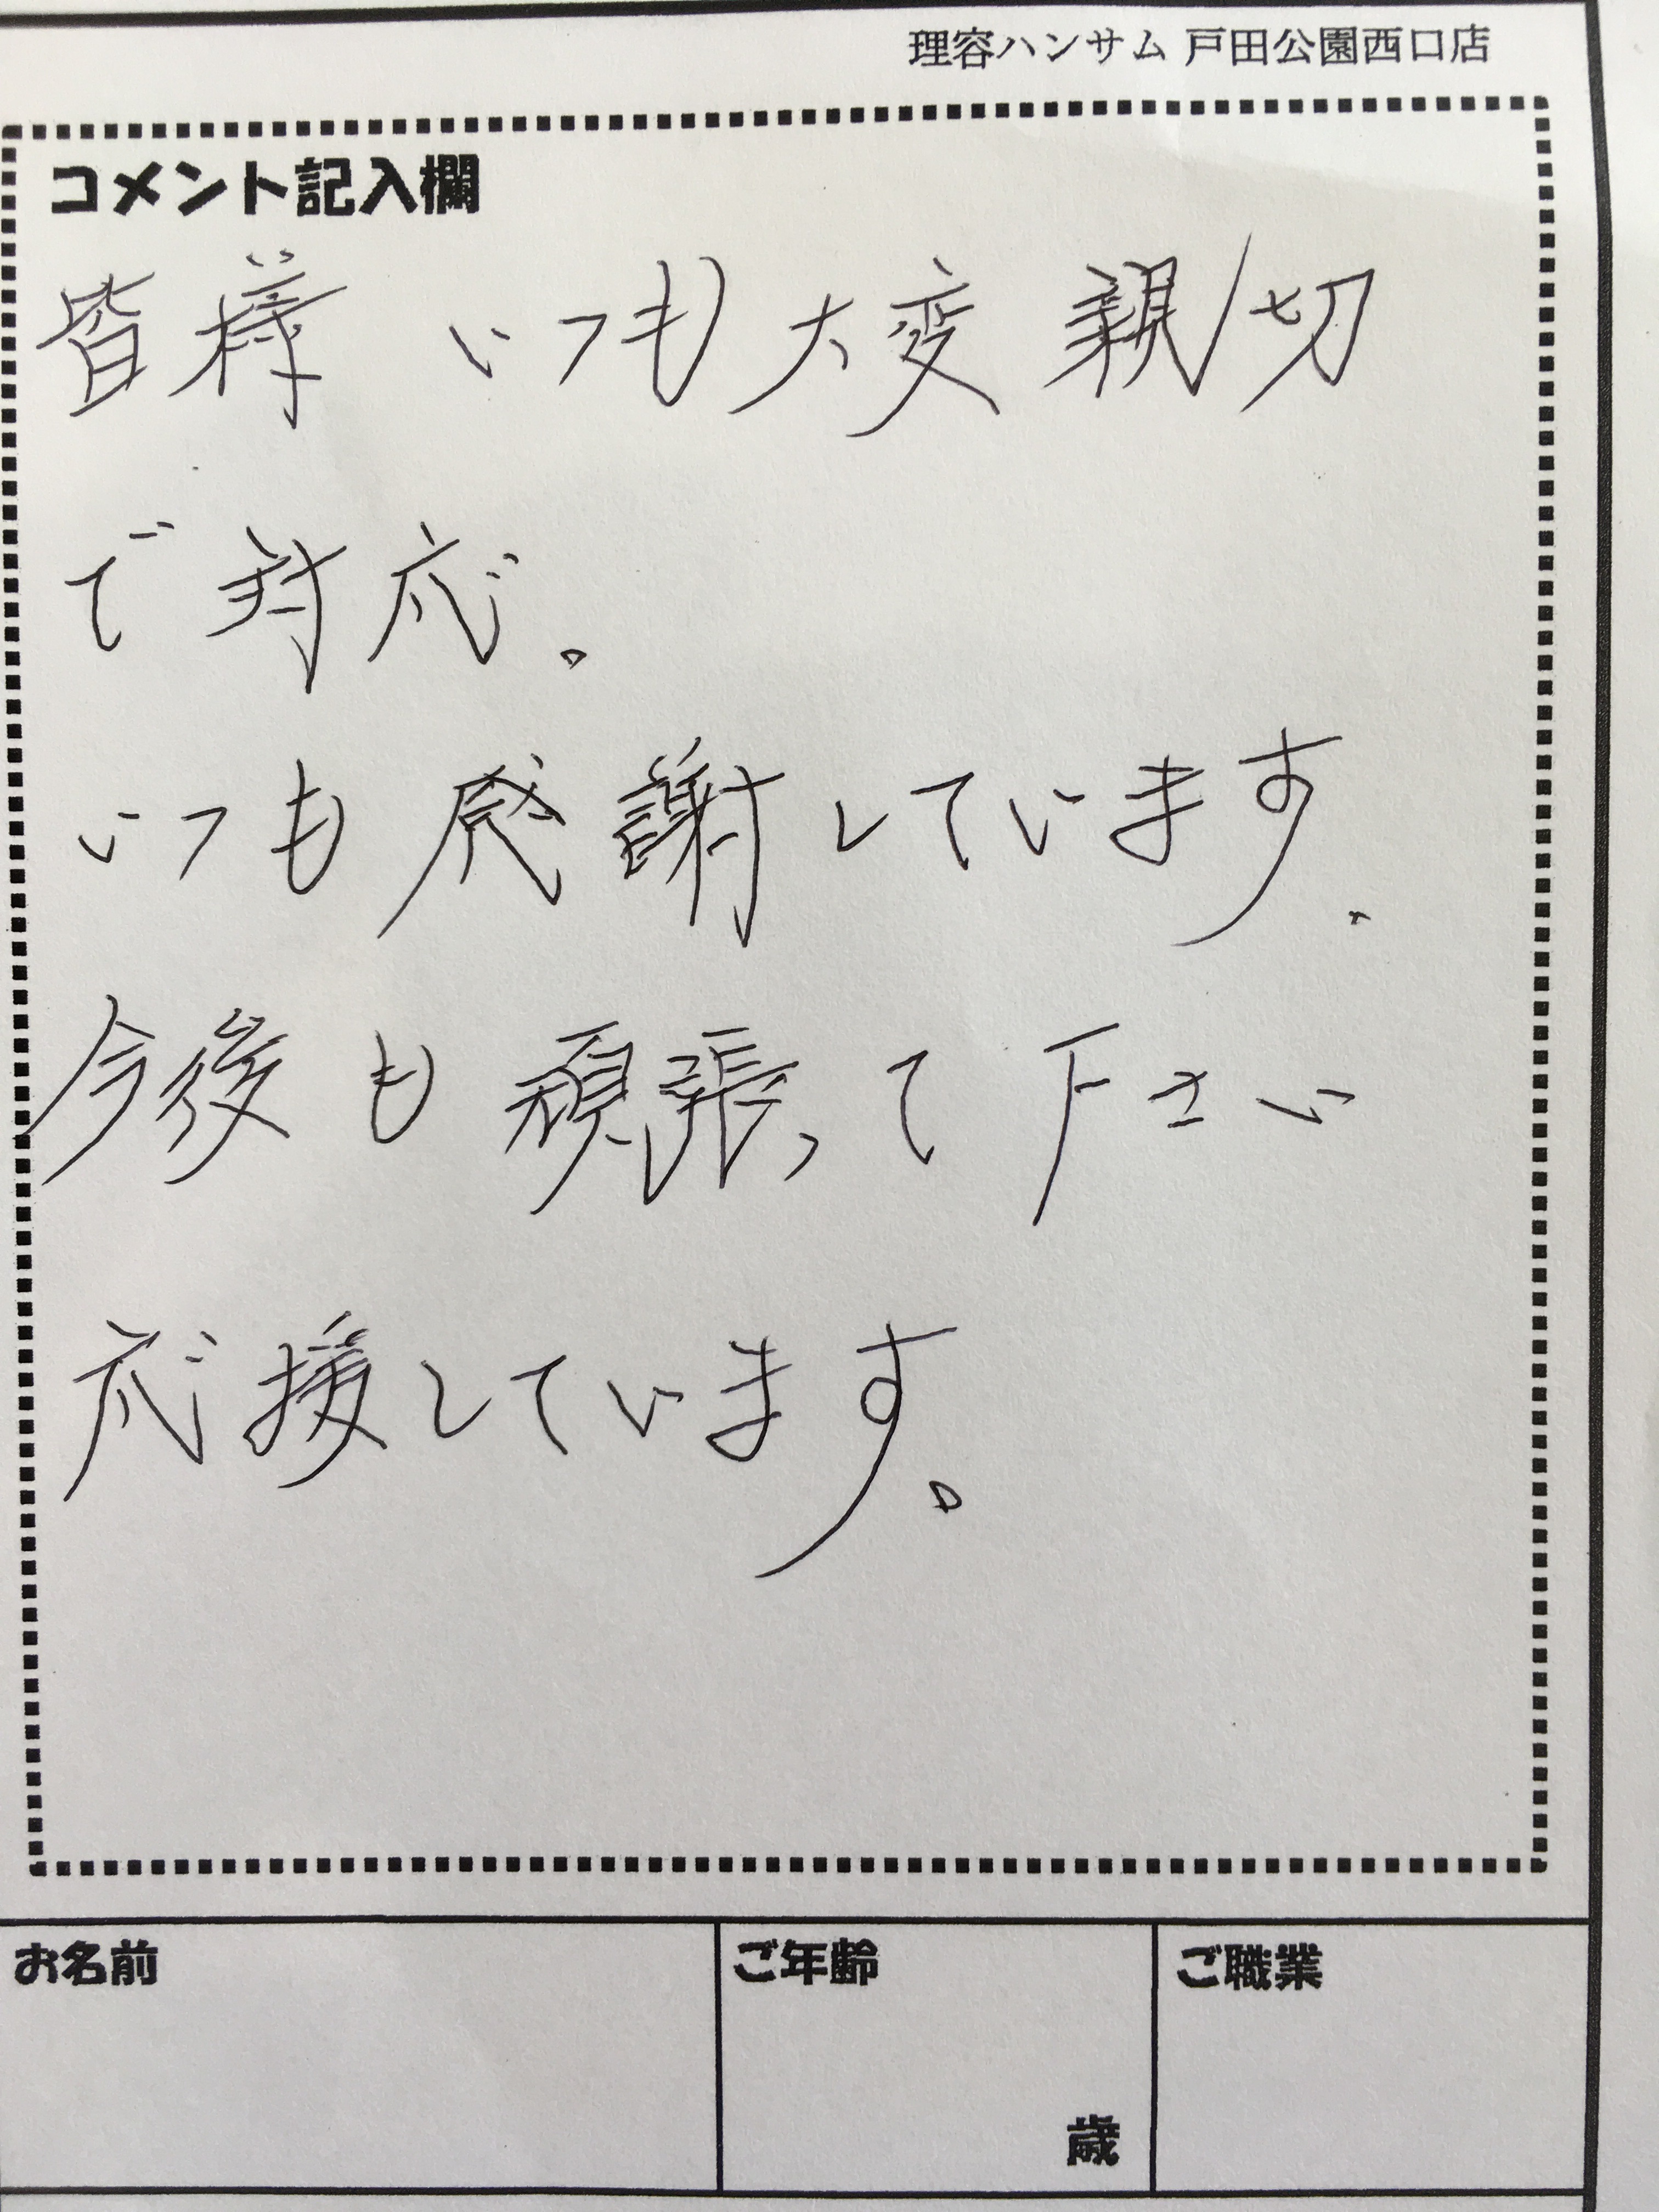 理容ハンサム 戸田公園西口店
コメント記入欄
皆様 いつも大変親切
で対応。
いつも感謝しています.
今後も頑張って下さい
応援しています。
お名前
ご年齢
ご職業
歳